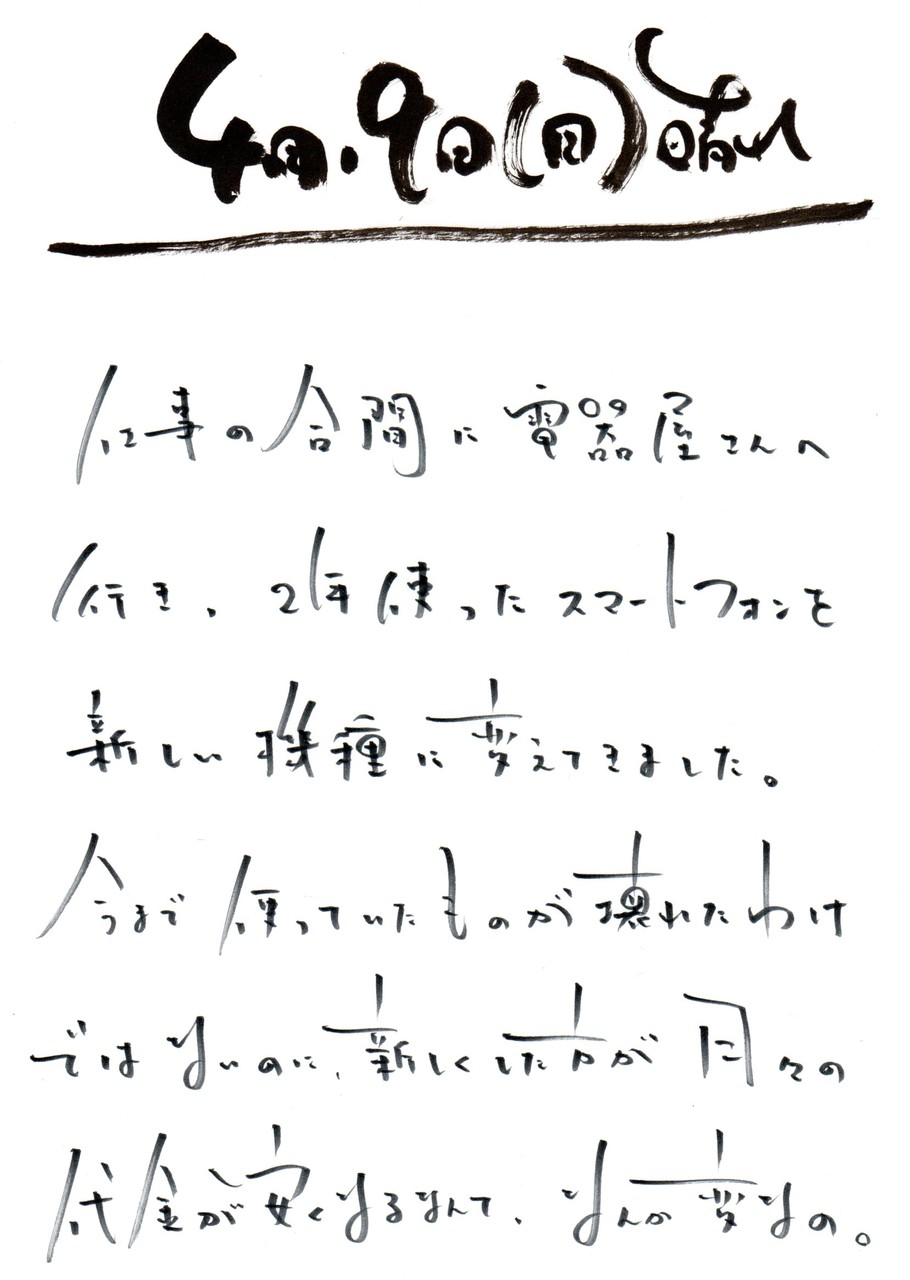 4月.9日(月)晴れ
仕事の合間に電器屋さんへ
行き、2年使ったスマートフォンを
新しい機種に変えてきました。
今まで使っていたものが壊れたわけ
ではないのに、新しくした方が月々の
代金が安くなるなんて、なんか変なの。